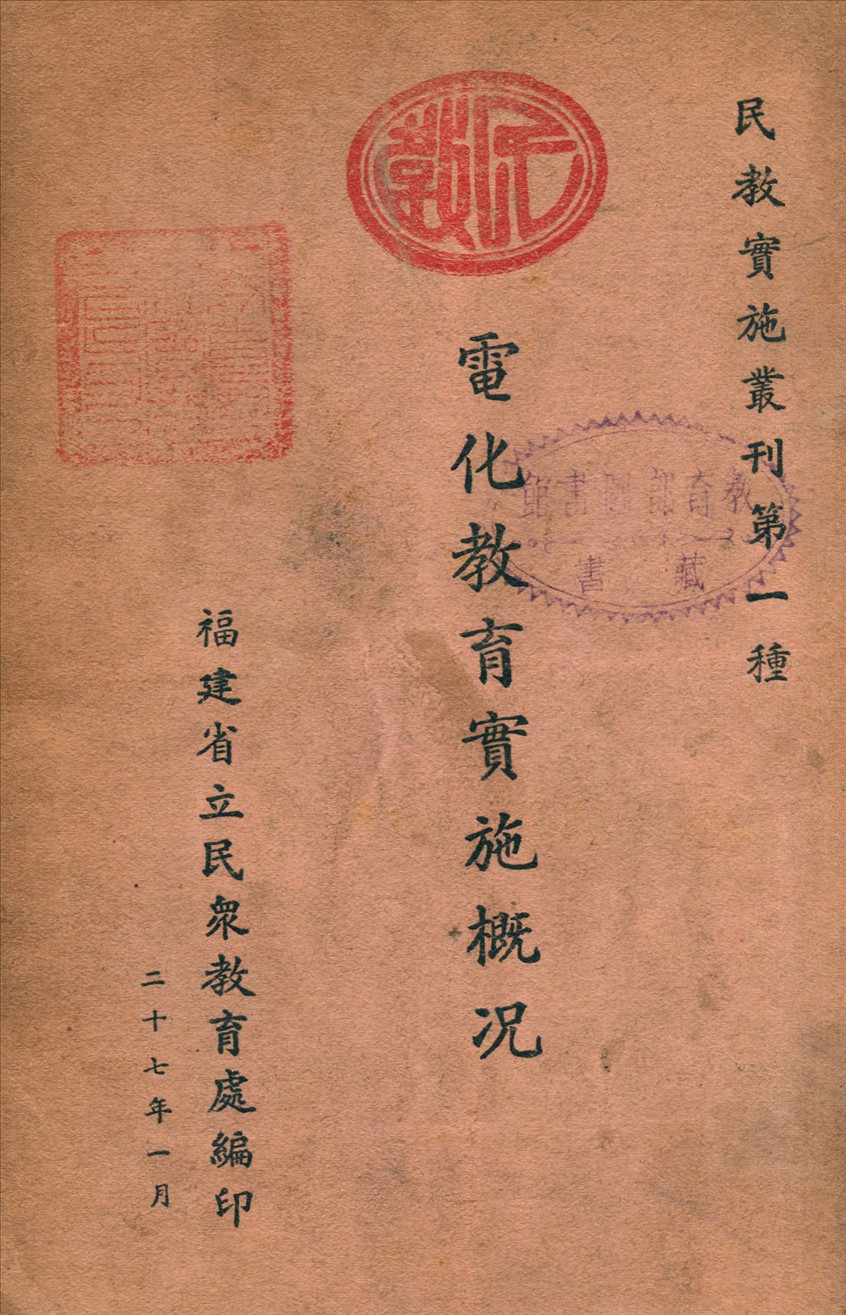 民教實施叢刊第一種
民教
電化教育實施概况
教育部圖書館
藏書
福建省立民衆教育處編印
二十七年一月